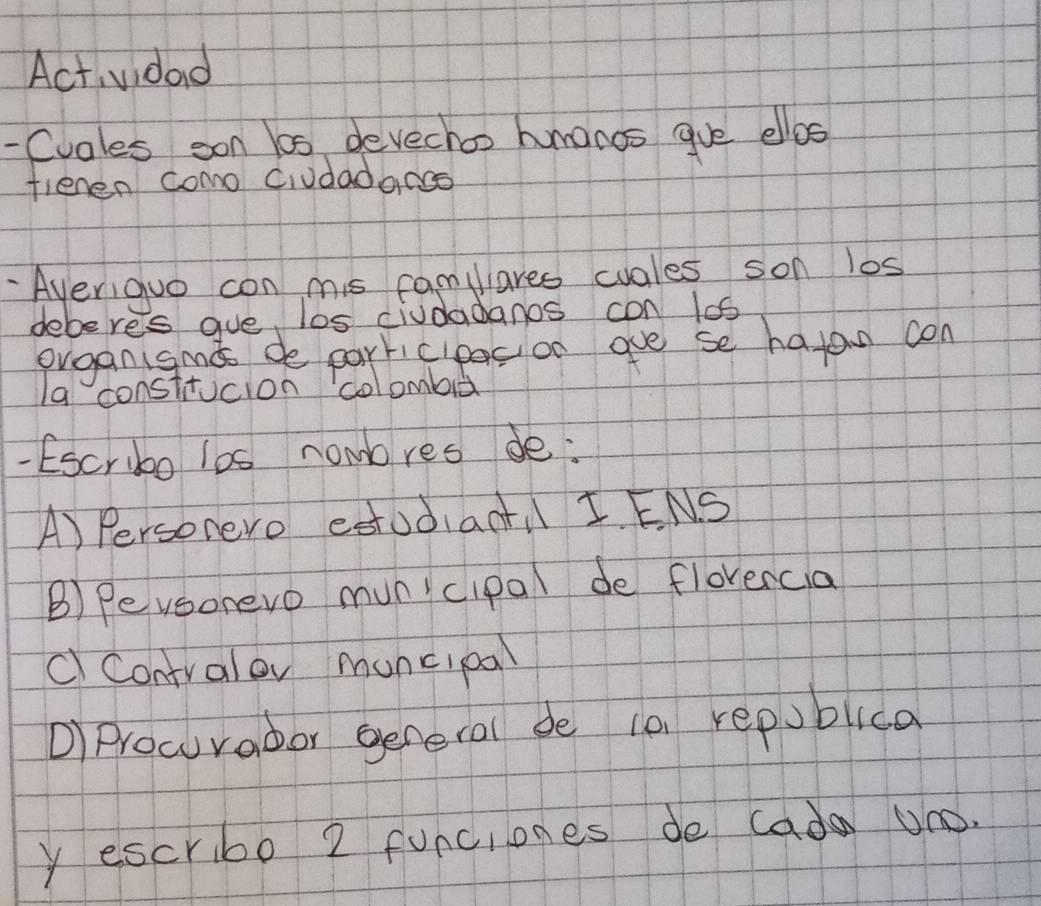 Actividad
-Cuales son los derechos humanos que ellos
tienen como ciudadanos
-Averiguo con mis familiares cuales son los
deberes que los ciudadanos con los
organismos de participacion que se hayan con
la constitucion colombia
-Escribo los nombres de:
A) Personero estudiantil I.E.N.S
B) Personero municipal de florencia
C) Contralor muncipal
D) Procurabor general de la republica
y escribo 2 funciones de cada uno.